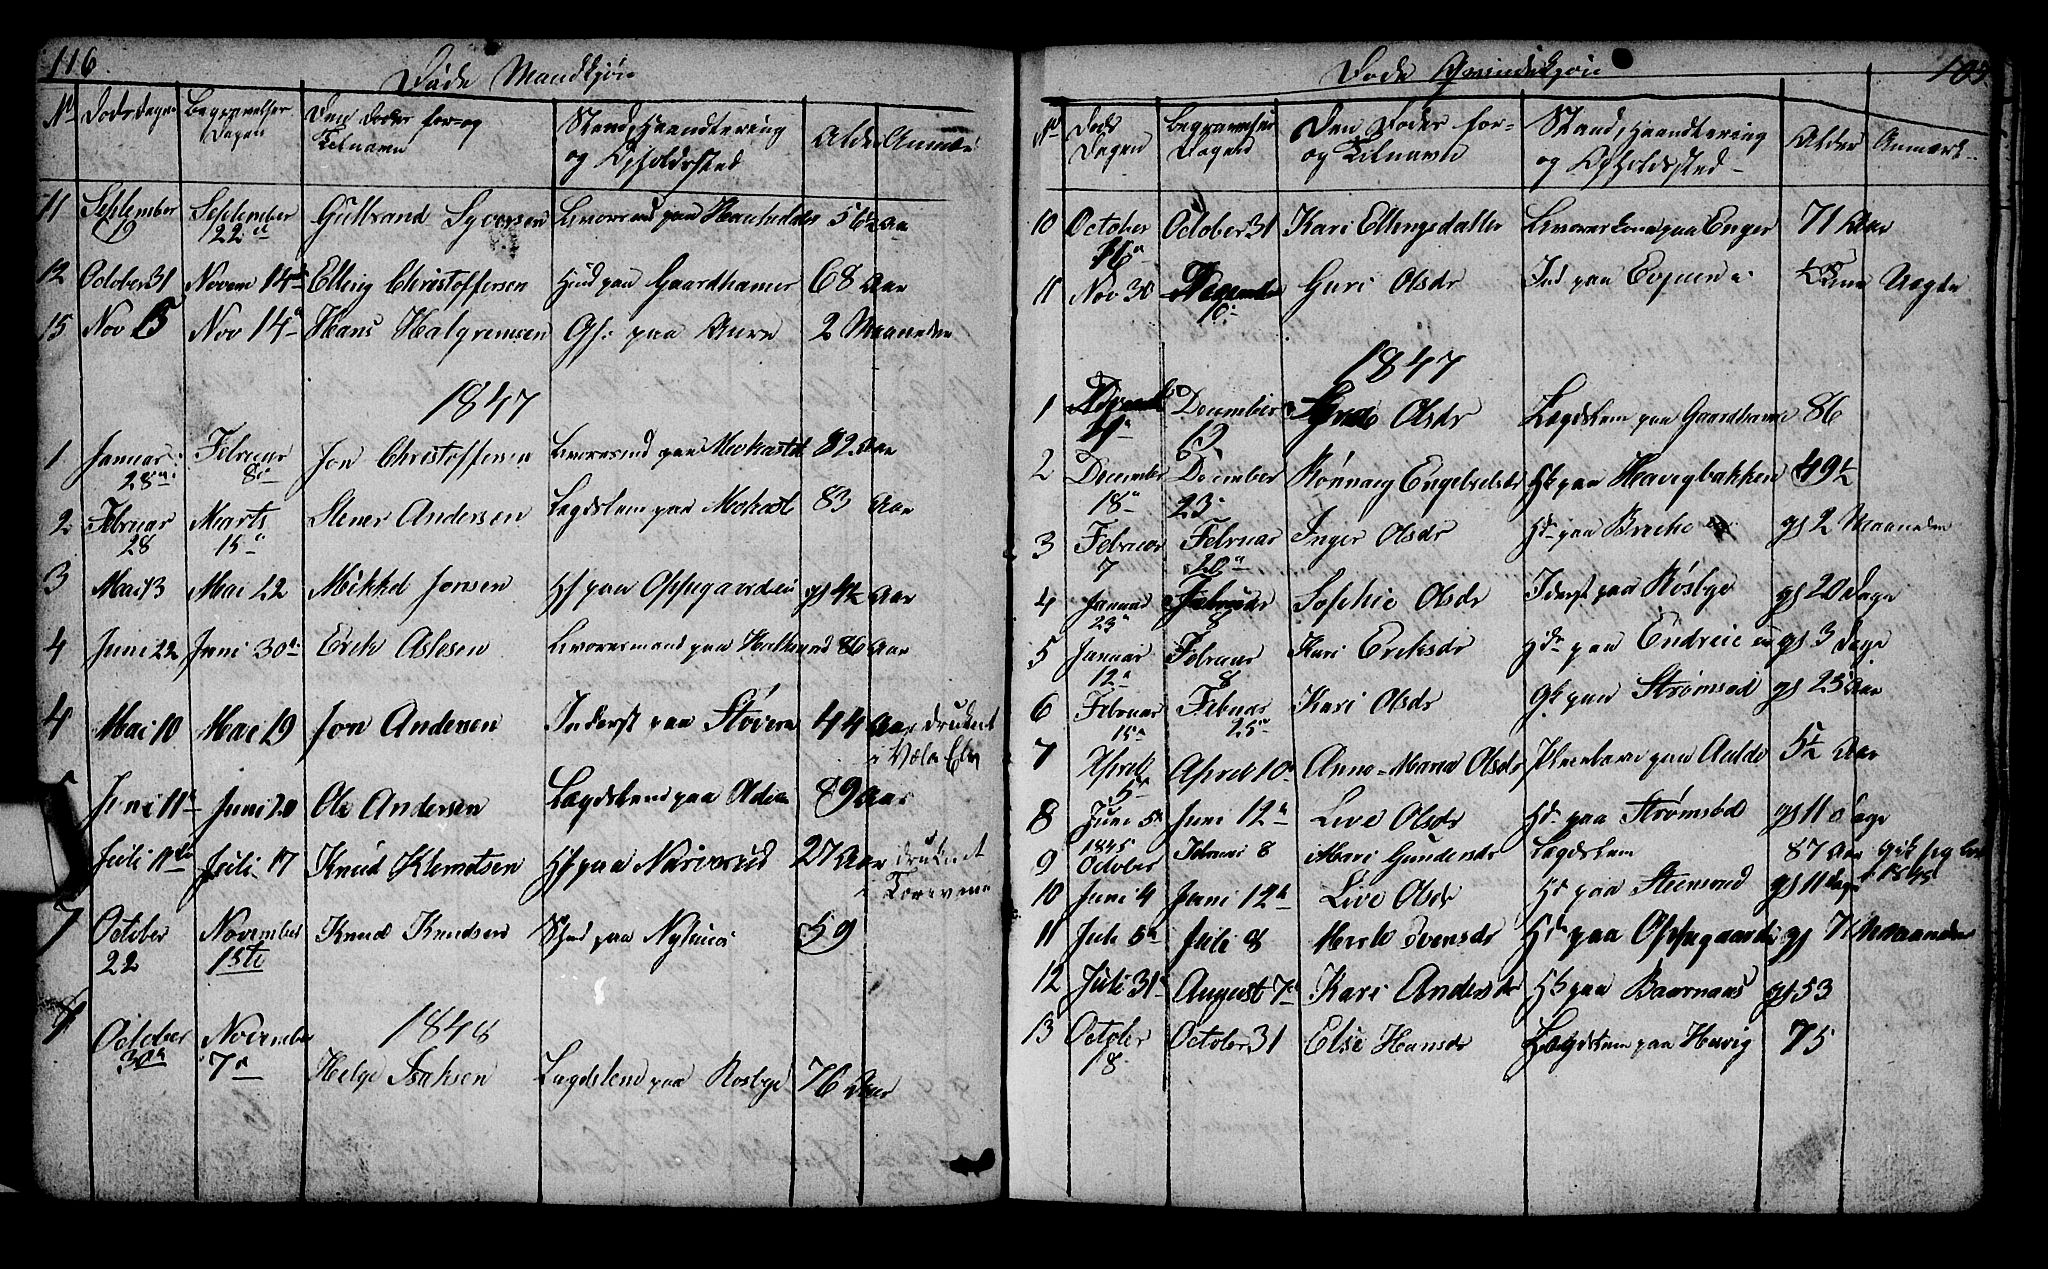 116
Døde Mandkjøn
No Døds Dagen Begravelses Dagen Den Dødes for- og Tilnavn Stand, Haandtering og Opholdssted Alder Anmær
11 September 19 September 22 Gulbrand Syversen paa 56½ Aar
12 October 31 Novem 14 Elling Christoffersen paa Gaardhamer 68 Aar
15 Nov 5 Nov 14 Hans Halgremsen Gf: paa Aure 2 Maaneder
1847
1 Januar 28 Februar 8 Jon Christoffersen paa 82 Aar
2 Februar 28 Marts 15 Stener Andersen Lægdslem paa 83 Aar
3 Mai 13 Mai 22 Mikkel Jonsen Hf paa Oppegaarden gf 4½ Aar
4 Juni 22 Juni 30 Erik Aslesen paa 86 Aar
4 Mai 10 Mai 19 Jon Andersen Inderst paa Støvern 44 Aar druknet
i Væla Elv
5 Juni 11 Juni 20 Ole Andersen Lægdslem paa 89 Aar
Juli 11 Juli 17 Knud Klemetsen Hf paa Narverud 27 Aar druknet
7 October 22 November 15te Knud Knudsen paa 59
1848
8 October 30 November 7 Helge Isaksen Lægdslem paa Rosbye 76 Aar
105
Døde Qvindekjøn
No Døds Dagen Begravelses Dagen Den Dødes for- og Tilnavn Stand, Haandtering og Opholdssted Alder Anmærk
10 October 16 October 31 Kari Ellingsdatter paa Enger 71 Aar
11 Nov 30 10 Guri Olsdr Ind paa Uægte
1847
1 December 13 Olsdr Lægdslem paa Gaardhamer 86
2 December 18 December 23 Rønnaug Engebretsdr paa Havigbakken 49½
3 Februar 7 Februar 20 Inger Olsdr Hf paa gf 2 Maaneder
4 Januar 23 Februar 8 Sophie Olsdr Inderst paa Rosbye gf 20 Dage
5 Januar 12 Februar 8 Kari Eriksdr paa gf 3 Dage
6 Februar 15 Februar 25 Kari Olsdr paa Strømsød gf 25 Aar
7 April 5 April 10 Anne Maria Olsdr paa 5½ Aar
8 Juni 5 Juni 12 Live Olsdr paa Strømsød gf 11 Dage
9 1845 October Februar 8 Mari Gundersdr Lægdslem 87 Aar gik sig bort
i 1845
10 Juni 4 Juni 12 Live Olsdr paa gf 11 Dage
11 Juli 5 Juli 8 Svensdr paa Oppegaarden gf 7 Maaneder
12 Juli 31 August 7 Kari Andersdr paa gf 53
13 October 18 October 31 Else Hansdr Lægdslem paa Hevig 75